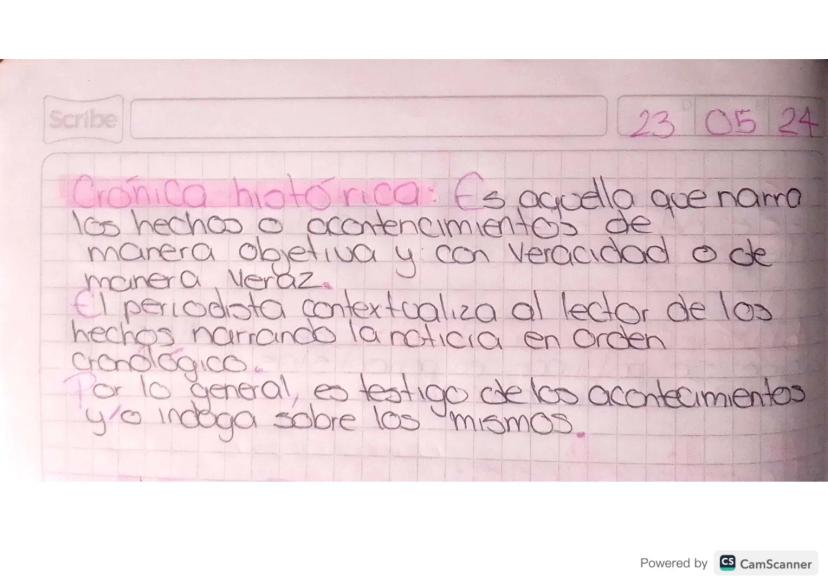 Scribe
23 05 24
Crónica histórica: Es aquella que narra
los hechos o acontencimientos de
manera objetiva y con veracidad o de
manera veraz.
El periodista contextualiza al lector de los
hechos narrando la noticia en orden
cronológico.
Por lo general, es testigo de los acontecimientos
y/o indaga sobre los mismos.
Powered by CS CamScanner